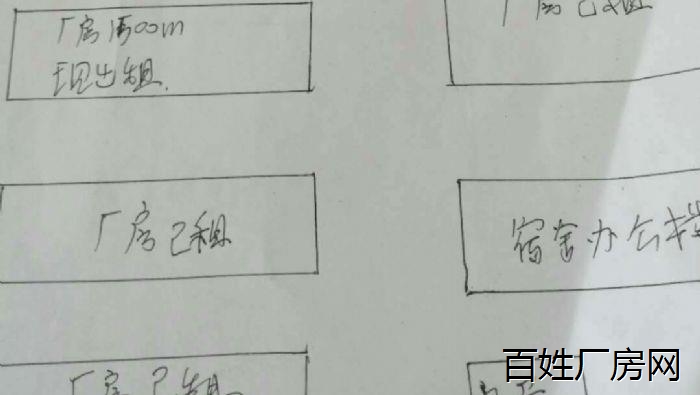 厂房1500m
现出租
厂房已租
厂房已租
宿舍办公楼
厂房已租
百姓厂房网